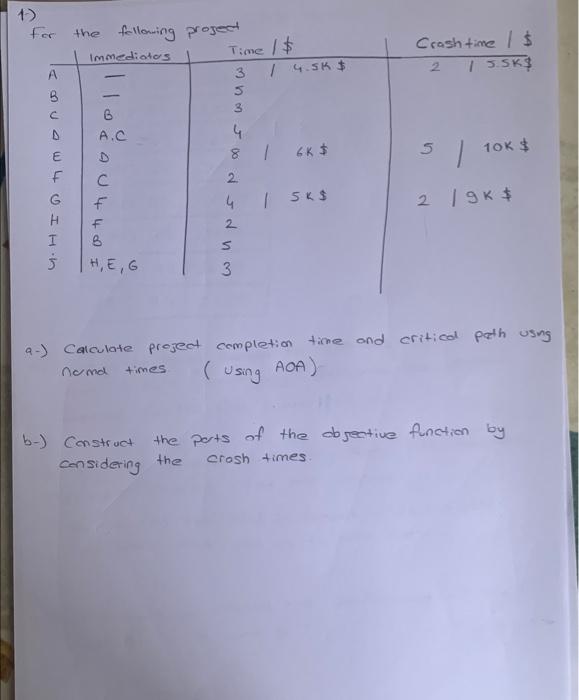 1-)
For the following project
Immediators | Time / $ | Crash time / $
A — 3 / 4.5K $ 2 / 5.5K $
B — 5
C B 3
D A.C 4
E D 8 / 6K $ 5 / 10K $
F C 2
G f 4 / 5K $ 2 / 9K $
H F 2
I B 5
j H, E, G 3
a-) Calculate project completion time and critical path using
normal times. (using AOA)
b-) Construct the parts of the objective function by
considering the crash times.